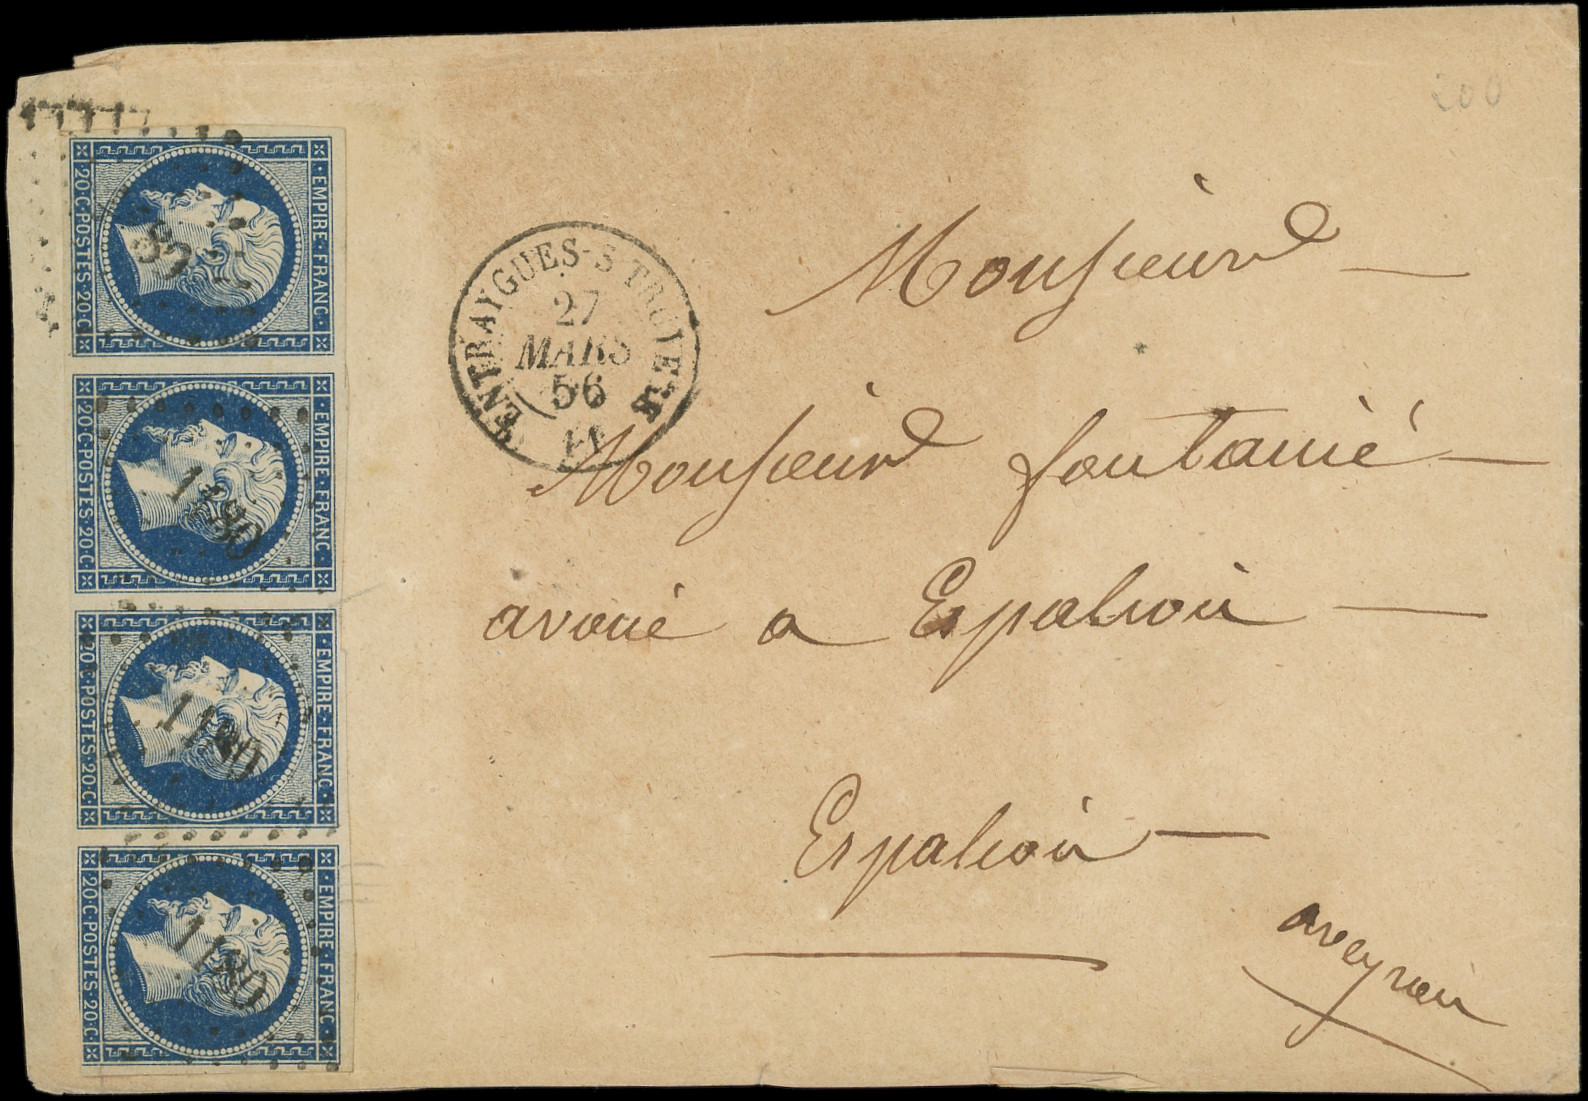 200
EMPIRE·FRANC·
20·C·POSTES·20·C
EMPIRE·FRANC·
20·C·POSTES·20·C
1180
EMPIRE·FRANC·
20·C·POSTES·20·C
1180
EMPIRE·FRANC·
20·C·POSTES·20·C
1180
ENTRAYGUES-S-TRUYERE
27
MARS
56
11
Monsieur
Monsieur fontanié
avoué a Espalion
Espalion
aveyron